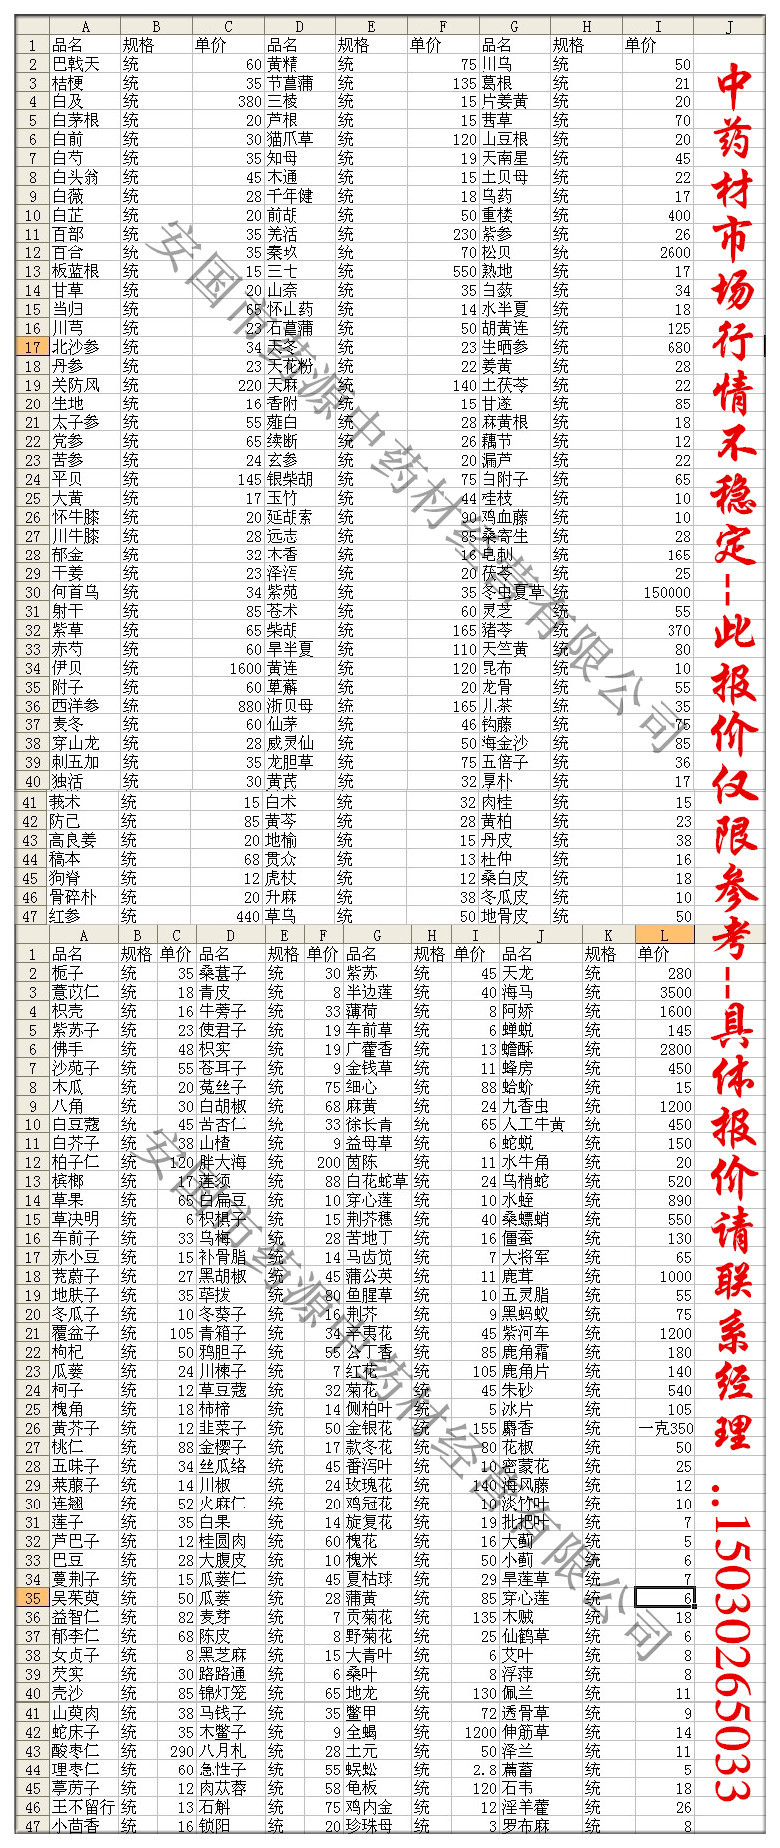 A B C D E F G H I J
1 品名 规格 单价 品名 规格 单价 品名 规格 单价
2 巴戟天 统 60 黄精 统 75 川乌 统 50
3 桔梗 统 35 节菖蒲 统 135 葛根 统 21
4 白及 统 380 三棱 统 15 片姜黄 统 20
5 白茅根 统 20 芦根 统 15 茜草 统 70
6 白前 统 30 猫爪草 统 120 山豆根 统 20
7 白芍 统 35 知母 统 19 天南星 统 45
8 白头翁 统 45 木通 统 15 土贝母 统 22
9 白薇 统 28 千年健 统 18 乌药 统 17
10 白芷 统 20 前胡 统 50 重楼 统 400
11 百部 统 35 羌活 统 230 紫参 统 26
12 百合 统 35 秦艽 统 70 松贝 统 2600
13 板蓝根 统 15 三七 统 550 熟地 统 17
14 甘草 统 20 山奈 统 35 白蔹 统 34
15 当归 统 65 怀山药 统 14 水半夏 统 18
16 川芎 统 23 石菖蒲 统 50 胡黄连 统 125
17 北沙参 统 34 天冬 统 23 生晒参 统 680
18 丹参 统 23 天花粉 统 22 姜黄 统 28
19 关防风 统 220 天麻 统 140 土茯苓 统 22
20 生地 统 16 香附 统 15 甘遂 统 85
21 太子参 统 55 薤白 统 28 麻黄根 统 18
22 党参 统 65 续断 统 26 藕节 统 12
23 苦参 统 24 玄参 统 20 漏芦 统 22
24 平贝 统 145 银柴胡 统 75 白附子 统 65
25 大黄 统 17 玉竹 统 44 桂枝 统 10
26 怀牛膝 统 20 延胡索 统 90 鸡血藤 统 10
27 川牛膝 统 28 远志 统 85 桑寄生 统 28
28 郁金 统 32 木香 统 16 皂刺 统 165
29 干姜 统 23 泽泻 统 20 茯苓 统 25
30 何首乌 统 34 紫苑 统 35 冬虫夏草 统 150000
31 射干 统 85 苍术 统 60 灵芝 统 55
32 紫草 统 65 柴胡 统 165 猪苓 统 370
33 赤芍 统 60 旱半夏 统 110 天竺黄 统 80
34 伊贝 统 1600 黄连 统 120 昆布 统 10
35 附子 统 60 萆薢 统 20 龙骨 统 55
36 西洋参 统 880 浙贝母 统 165 儿茶 统 35
37 麦冬 统 60 仙茅 统 46 钩藤 统 75
38 穿山龙 统 28 威灵仙 统 50 海金沙 统 85
39 刺五加 统 35 龙胆草 统 75 五倍子 统 36
40 独活 统 30 黄芪 统 32 厚朴 统 17
41 莪术 统 15 白术 统 32 肉桂 统 15
42 防己 统 85 黄芩 统 28 黄柏 统 23
43 高良姜 统 20 地榆 统 15 丹皮 统 38
44 稿本 统 68 贯众 统 13 杜仲 统 16
45 狗脊 统 12 虎杖 统 12 桑白皮 统 18
46 骨碎朴 统 20 升麻 统 38 冬瓜皮 统 10
47 红参 统 440 草乌 统 50 地骨皮 统 50
A B C D E F G H I J K L
1 品名 规格 单价 品名 规格 单价 品名 规格 单价 品名 规格 单价
2 栀子 统 35 桑葚子 统 30 紫苏 统 45 天龙 统 280
3 薏苡仁 统 18 青皮 统 8 半边莲 统 40 海马 统 3500
4 枳壳 统 16 牛蒡子 统 33 薄荷 统 8 阿娇 统 1600
5 紫苏子 统 23 使君子 统 19 车前草 统 6 蝉蜕 统 145
6 佛手 统 48 枳实 统 19 广藿香 统 13 蟾酥 统 2800
7 沙苑子 统 55 苍耳子 统 9 金钱草 统 11 蜂房 统 450
8 木瓜 统 20 菟丝子 统 75 细心 统 88 蛤蚧 统 15
9 八角 统 30 白胡椒 统 68 麻黄 统 24 九香虫 统 1200
10 白豆蔻 统 45 苦杏仁 统 33 徐长青 统 65 人工牛黄 统 450
11 白芥子 统 38 山楂 统 9 益母草 统 6 蛇蜕 统 150
12 柏子仁 统 120 胖大海 统 200 茵陈 统 11 水牛角 统 20
13 槟榔 统 17 莲须 统 88 白花蛇草 统 24 乌梢蛇 统 520
14 草果 统 65 白扁豆 统 10 穿心莲 统 10 水蛭 统 890
15 草决明 统 6 枳椇子 统 15 荆芥穗 统 40 桑螵蛸 统 550
16 车前子 统 33 乌梅 统 28 苦地丁 统 16 僵蚕 统 130
17 赤小豆 统 15 补骨脂 统 14 马齿苋 统 7 大将军 统 65
18 茺蔚子 统 27 黑胡椒 统 45 蒲公英 统 11 鹿茸 统 1000
19 地肤子 统 35 荜拨 统 80 鱼腥草 统 10 五灵脂 统 55
20 冬瓜子 统 10 冬葵子 统 16 荆芥 统 9 黑蚂蚁 统 75
21 覆盆子 统 105 青箱子 统 34 辛夷花 统 45 紫河车 统 1200
22 枸杞 统 50 鸦胆子 统 55 公丁香 统 85 鹿角霜 统 180
23 瓜蒌 统 24 川楝子 统 7 红花 统 105 鹿角片 统 140
24 柯子 统 12 草豆蔻 统 32 菊花 统 45 朱砂 统 540
25 槐角 统 18 柿楴 统 14 侧柏叶 统 5 冰片 统 105
26 黄芥子 统 12 韭菜子 统 50 金银花 统 155 麝香 统 一克350
27 桃仁 统 88 金樱子 统 17 款冬花 统 80 花椒 统 50
28 五味子 统 34 丝瓜络 统 45 番泻叶 统 10 密蒙花 统 25
29 莱菔子 统 14 川椒 统 24 玫瑰花 统 140 海风藤 统 12
30 连翘 统 52 火麻仁 统 20 鸡冠花 统 10 淡竹叶 统 10
31 莲子 统 35 白果 统 14 旋复花 统 19 批把叶 统 7
32 芦巴子 统 12 桂圆肉 统 60 槐花 统 16 大蓟 统 5
33 巴豆 统 28 大腹皮 统 10 槐米 统 50 小蓟 统 6
34 蔓荆子 统 15 瓜蒌仁 统 45 夏枯球 统 29 旱莲草 统 7
35 吴茱萸 统 50 瓜蒌 统 28 蒲黄 统 85 穿心莲 统 6
36 益智仁 统 82 麦芽 统 7 贡菊花 统 135 木贼 统 18
37 郁李仁 统 68 陈皮 统 8 野菊花 统 25 仙鹤草 统 6
38 女贞子 统 8 黑芝麻 统 15 大青叶 统 6 艾叶 统 8
39 芡实 统 30 路路通 统 6 桑叶 统 8 浮萍 统 8
40 壳沙 统 85 锦灯笼 统 65 地龙 统 130 佩兰 统 11
41 山萸肉 统 38 马钱子 统 35 鳖甲 统 72 透骨草 统 9
42 蛇床子 统 35 木鳖子 统 9 全蝎 统 1200 伸筋草 统 14
43 酸枣仁 统 290 八月札 统 28 土元 统 50 泽兰 统 11
44 理枣仁 统 60 急性子 统 55 蜈蚣 统 2.8 萹蓄 统 5
45 葶苈子 统 12 肉苁蓉 统 58 龟板 统 120 石韦 统 18
46 王不留行 统 13 石斛 统 75 鸡内金 统 12 淫羊藿 统 26
47 小茴香 统 16 锁阳 统 20 珍珠母 统 3 罗布麻 统 8
中药材市场行情不稳定--此报价仅限参考--具体报价请联系经理..15030265033
安国市药源中药材经营有限公司
安国市药源中药材经营有限公司